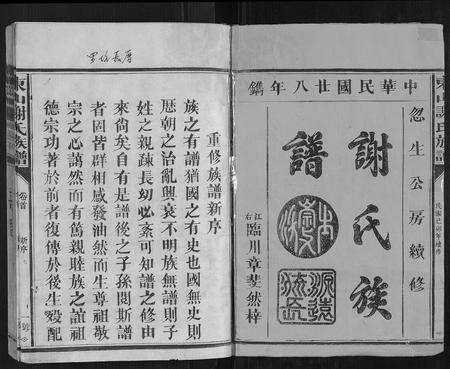 東山謝氏族譜
民國己卯年續修
忽生公房續修
中華民國廿八年鐫
謝氏族
譜
江右臨川章斐然梓
源遠流長
重修族譜新序
族之有譜猶國之有史也國無史則
歷朝之治亂興衰不明族無譜則子
姓之親疎長幼必紊可知譜之修由
來尚矣自有是譜後之子孫閱斯譜
者固皆群相感發油然而生尊祖敬
宗之心藹然而有篤親睦族之誼祖
德宗功著於前者復傳於後生歿配
東山謝氏族譜
卷首
新序